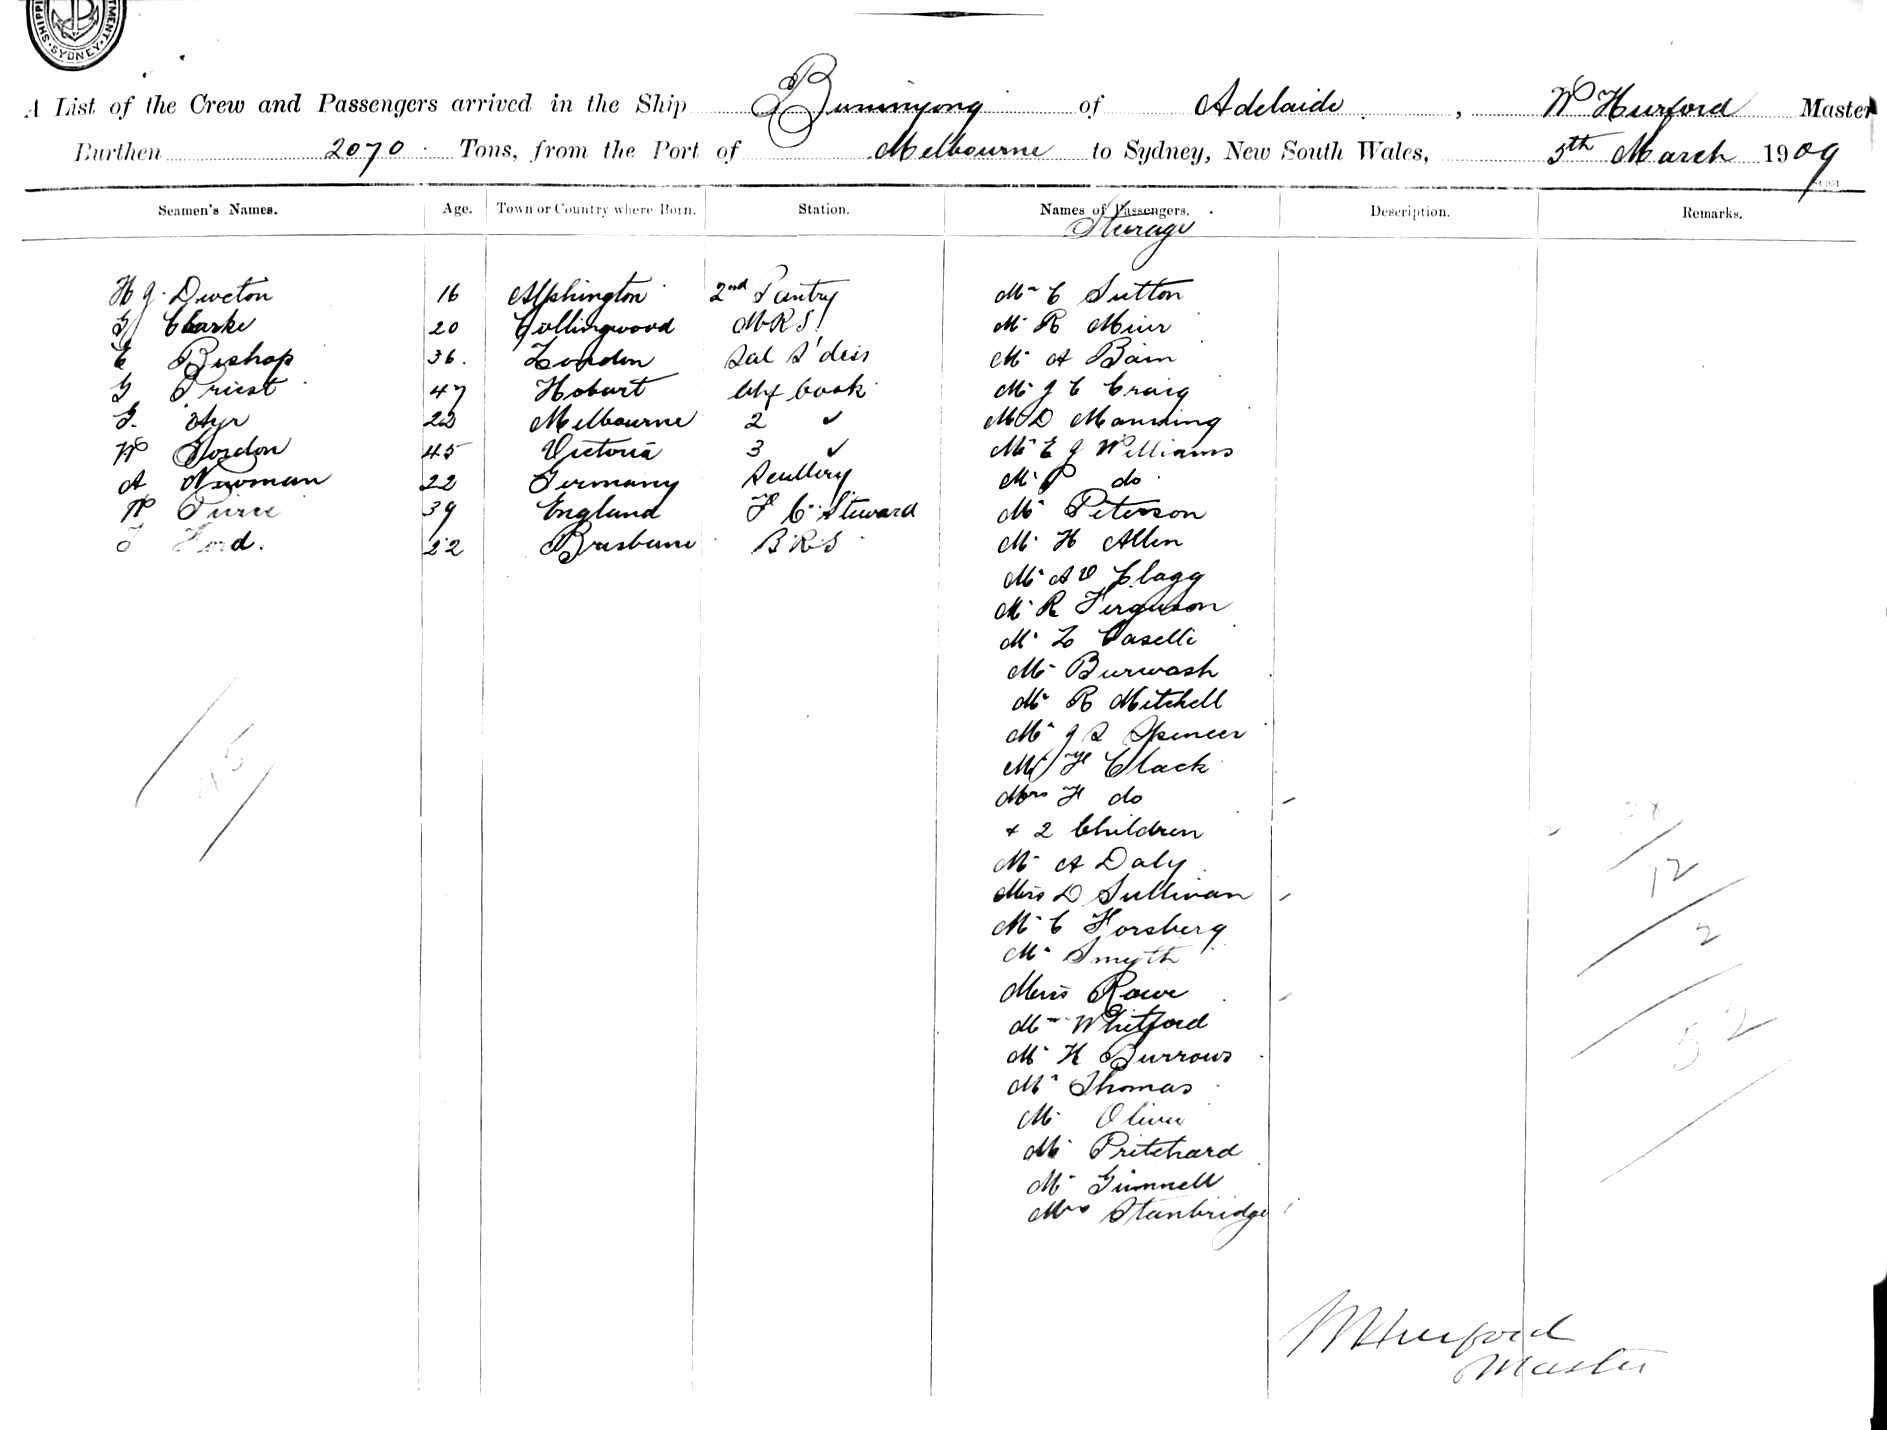 SHIPPI
TMENT
SYDNEY
A List of the Crew and Passengers arrived in the Ship Buninyong of Adelaide, W Hurford Master
Burthen 2070 Tons, from the Port of Melbourne to Sydney, New South Wales, 5th March 1909
Seamen's Names. Age. Town or Country where Born. Station. Names of Passengers. Description. Remarks.
Steerage
H J 16 Alphington 2nd Pantry Mr C Sutton
G Clarke 20 Collingwood MRS Mr R Muir
C Bishop 36. London Sal Mr A Bain
G Priest 47 Hobart Chf Cook Mr J C Craig
22 Melbourne 2 ✓ Mr D Manning
W Gordon 45 Victoria 3 ✓ Mr E J Williams
A Newman 22 Germany Scullery Mr P do
W 39 England F C Steward Mr Peterson
Ford. 22 Brisbane BRS Mr H Allen
Mr A V Clagg
Mr R Ferguson
Mr L Caselli
Mr Burwash
Mr R Mitchell
Mr J S Spencer
Mr F Clack
Mrs F do
+ 2 Children
Mr A Daly
Miss D Sullivan
Mr C Forsberg
Mr Smyth
Miss Rowe
Mr Whitford
Mr H Burrows
Mr Thomas
Mr Oliver
Mr Pritchard
Mr Gunnell
Mrs Stanbridge
12
2
52
W Hurford
Master